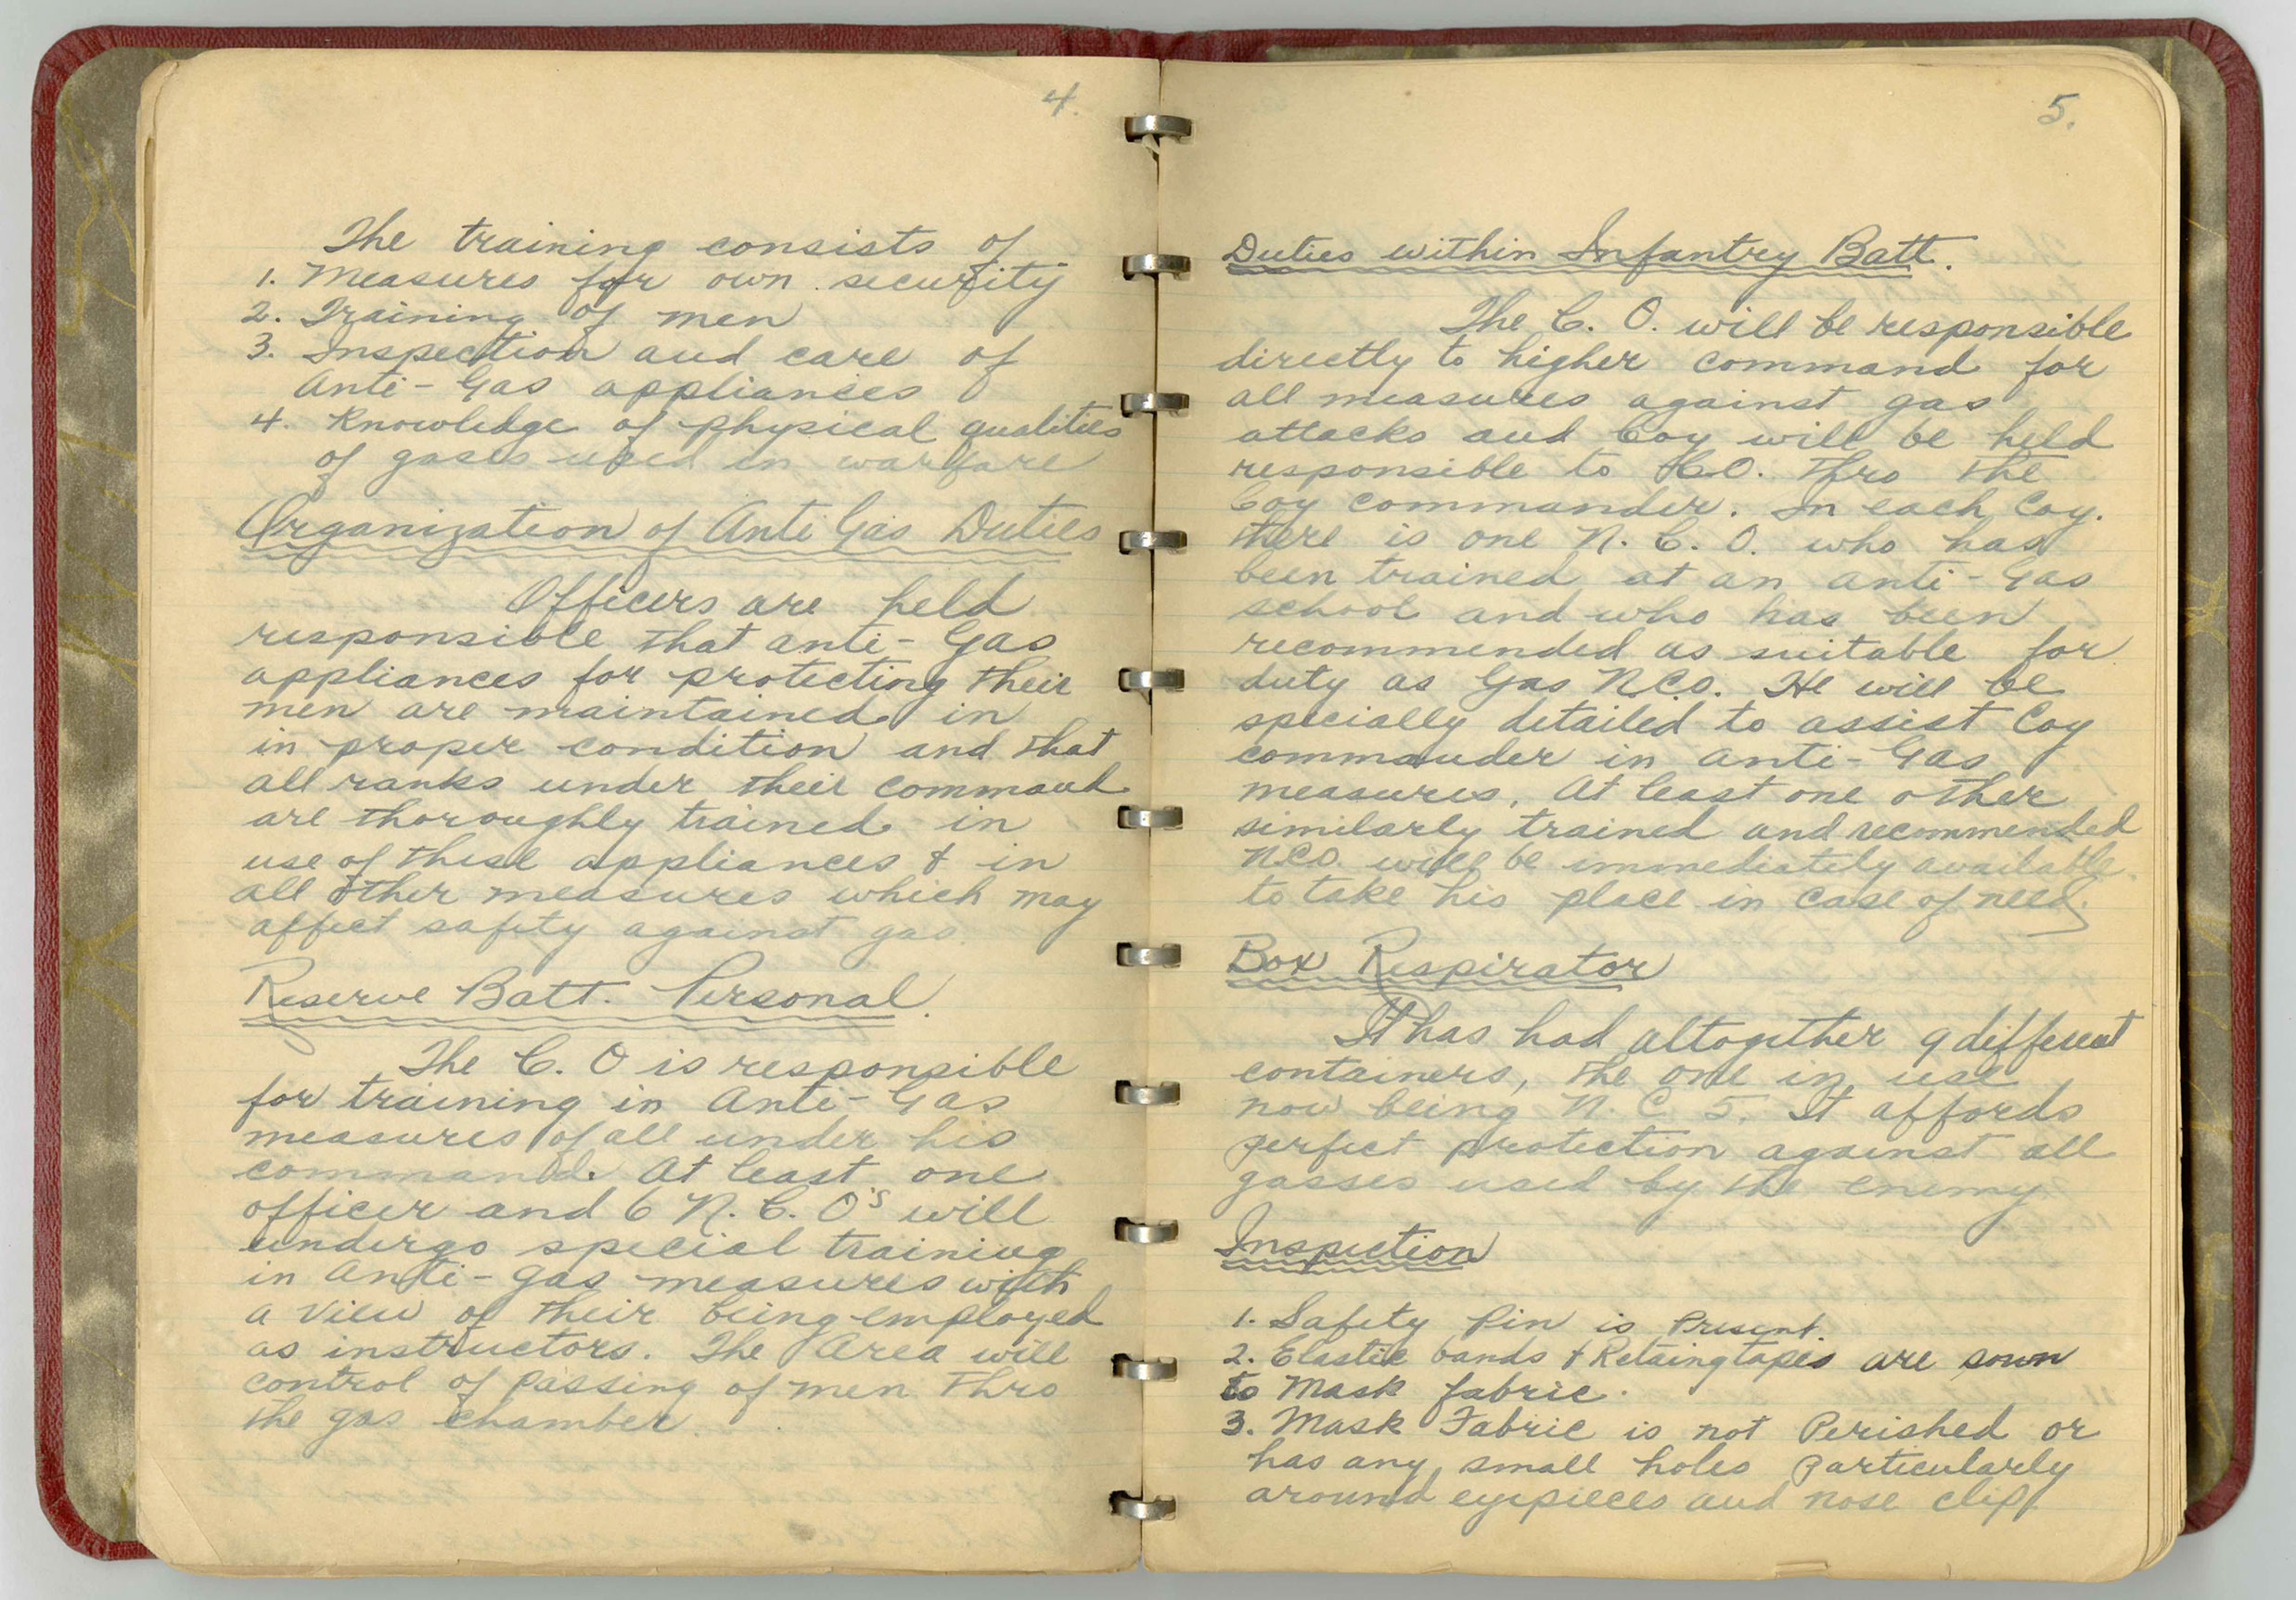 4.
The training consists of
1. Measures for own security
2. Training of men
3. Inspection and care of
Anti-Gas appliances
4. Knowledge of physical qualities
of gases used in warfare
Organization of Anti Gas Duties
Officers are held
responsible that anti-Gas
appliances for protecting their
men are maintained in
in proper condition and that
all ranks under their command
are thoroughly trained in
use of these appliances & in
all other measures which may
affect safety against gas.
Reserve Batt. Personal.
The C. O is responsible
for training in Anti-Gas
measures of all under his
command. At least one
officer and 6 N. C. O's will
undergo special training
in Anti-gas measures with
a view of their being employed
as instructors. The Area will
control of passing of men thro
the gas chamber.
5.
Duties within Infantry Batt.
The C. O. will be responsible
directly to higher command for
all measures against gas
attacks and Coy will be held
responsible to C.O. thro the
Coy commander. In each Coy.
there is one N. C. O. who has
been trained at an anti-Gas
school and who has been
recommended as suitable for
duty as Gas N.C.O. He will be
specially detailed to assist Coy
commander in Anti-Gas
measures. At least one other
similarly trained and recommended
N.C.O. will be immediately available
to take his place in case of need.
Box Respirator
It has had altogether 9 different
containers, the one in use
now being N. C 5. It affords
perfect protection against all
gasses used by the enemy
Inspection
1. Safety Pin is Present.
2. Elastic bands & Retaing tapes are sown
to Mask fabric.
3. Mask Fabric is not Perished or
has any small holes particularly
around eyepieces and nose clip